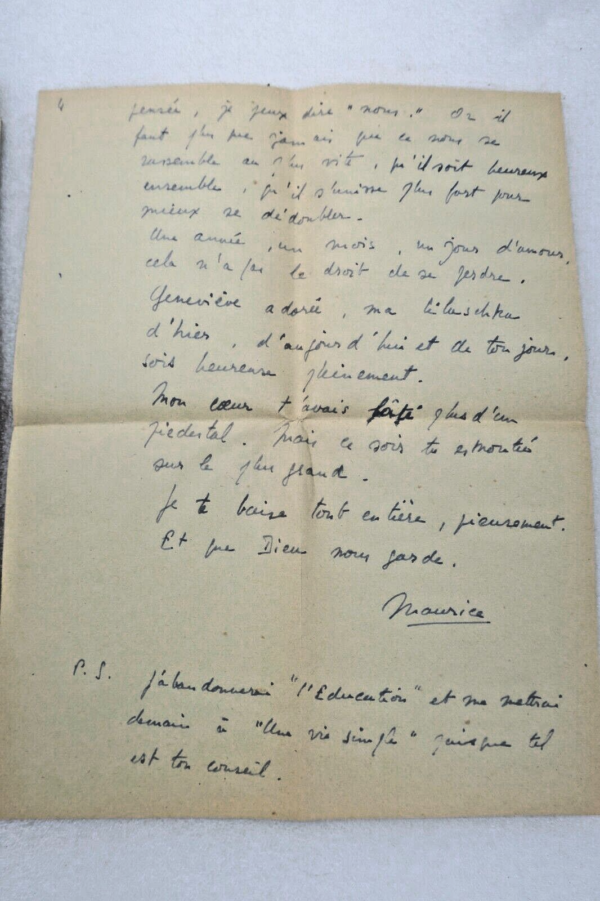 4
pensée, je peux dire "nous." Or il
faut plus que jamais que ce nous se
rassemble au plus vite, qu'il soit heureux
ensemble, qu'il s'unisse plus fort pour
mieux se dédoubler.
Une année, un mois, un jour d'amour,
cela n'a pas le droit de se perdre.
Geneviève adorée, ma
d'hier, d'aujourd'hui et de toujours,
sois heureuse pleinement.
Mon cœur t'avais forgé plus d'un
piedestal. Mais ce soir tu es montée
sur le plus grand.
Je te baise tout entière, pieusement.
Et que Dieu nous garde.
Maurice
P.S. J'abandonnerai "l'Education" et me mettrai
demain à "Une vie simple" puisque tel
est ton conseil.